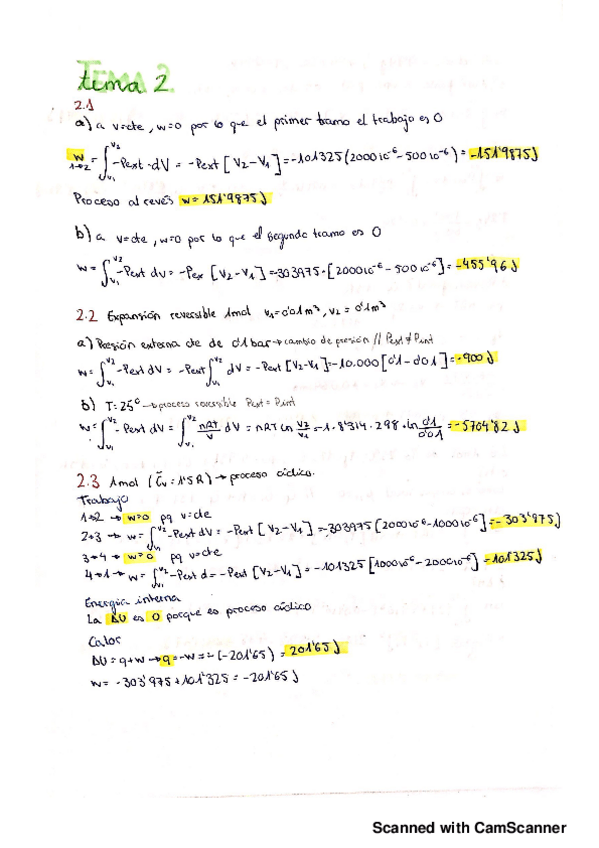 tema 2
2.1
a) a v=cte, w=0 por lo que el primer tramo el trabajo es 0
w 1→2 = ∫v1 v2 -Pext·dV = -Pext [V2-V1] = -101325 (2000 10^-6 - 500 10^-6) = -151'9875 J
Proceso al revés w = 151'9875 J
b) a v=cte, w=0 por lo que el segundo tramo es 0
w = ∫v1 v2 -Pext dv = -Pex [V2-V1] = -303975·[2000 10^-6 - 500 10^-6] = -455'96 J
2.2 Expansión reversible 1mol v1=0'01m³, v2 = 0'1m³
a) Presión externa cte de 0'1bar → cambio de presión // Pext ≠ Pint
w = ∫v1 v2 -Pext dV = -Pext ∫v1 v2 dV = -Pext [V2-V1] = -10.000 [0'1 - 0'01] = -900 J
b) T: 25° → proceso reversible Pext = Pint
w = ∫v1 v2 -Pext dV = ∫v1 v2 nRT/V dV = nRT ln V2/V1 = -1·8'314·298·ln 0'1/0'01 = -5704'82 J
2.3 1mol (C̄v = 1'5 R) → proceso cíclico.
Trabajo
1→2 → w=0 pq v=cte
2→3 → w = ∫v1 v2 -Pext dV = -Pext [V2-V1] = -303975 [2000 10^-6 - 1000 10^-6] = -303'975 J
3→4 → w=0 pq v=cte
4→1 → w = ∫v1 v2 -Pext d = -Pext [V2-V1] = -101325 [1000 10^-6 - 2000 10^-6] = -101325 J
Energía interna
La ΔU es 0 porque es proceso cíclico
Calor
ΔU = q+w → q = -w = -(-201'65) = 201'65 J
w = -303'975 + 101'325 = -201'65 J
Scanned with CamScanner